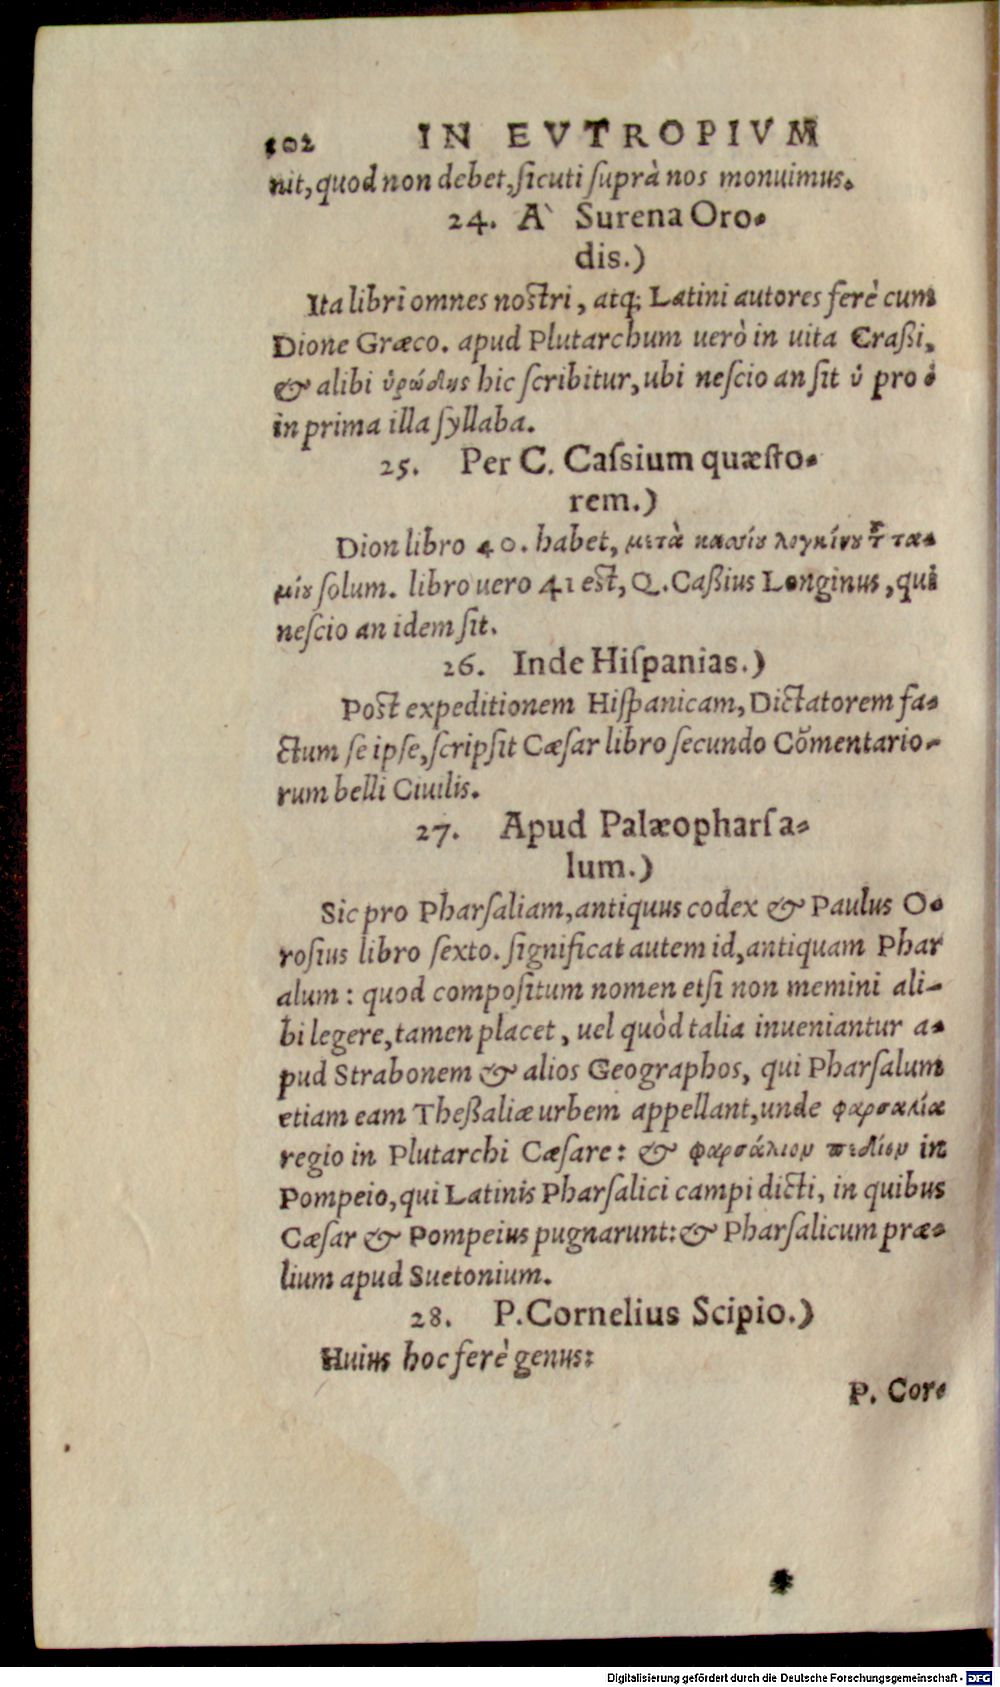 102 IN EVTROPIVM
nit, quod non debet, ſicuti ſuprà nos monuimus.
24. A` Surena Oro-
dis.)
Ita libri omnes noſtri, atq; Latini autores ferè cum
Dione Græco. apud Plutarchum uerò in uita Craßi,
& alibi ὑρώδης hic ſcribitur, ubi neſcio an ſit ὑ pro ὀ
in prima illa ſyllaba.
25. Per C. Caſsium quæſto-
rem.)
Dion libro 40. habet, μετὰ κασσίου λογκίνου τ τα-
μίου ſolum. libro uero 41 eſt, Q. Caßius Longinus, qui
neſcio an idem ſit.
26. Inde Hiſpanias.)
Poſt expeditionem Hiſpanicam, Dictatorem fa-
ctum ſe ipſe, ſcripſit Cæſar libro ſecundo Cõmentario-
rum belli Ciuilis.
27. Apud Palæopharſa-
lum.)
Sic pro Pharſaliam, antiquus codex & Paulus O-
roſius libro ſexto. ſignificat autem id, antiquam Phar
alum: quod compoſitum nomen etſi non memini ali-
bi legere, tamen placet, uel quòd talia inueniantur a-
pud Strabonem & alios Geographos, qui Pharſalum
etiam eam Theßaliæ urbem appellant, unde φαρσαλία
regio in Plutarchi Cæſare: & φαρσάλιον πεδίον in
Pompeio, qui Latinis Pharſalici campi dicti, in quibus
Cæſar & Pompeius pugnarunt: & Pharſalicum præ-
lium apud Suetonium.
28. P. Cornelius Scipio.)
Huius hoc ferè genus:
P. Cor-
Digitalisierung gefördert durch die Deutsche Forschungsgemeinschaft - DFG